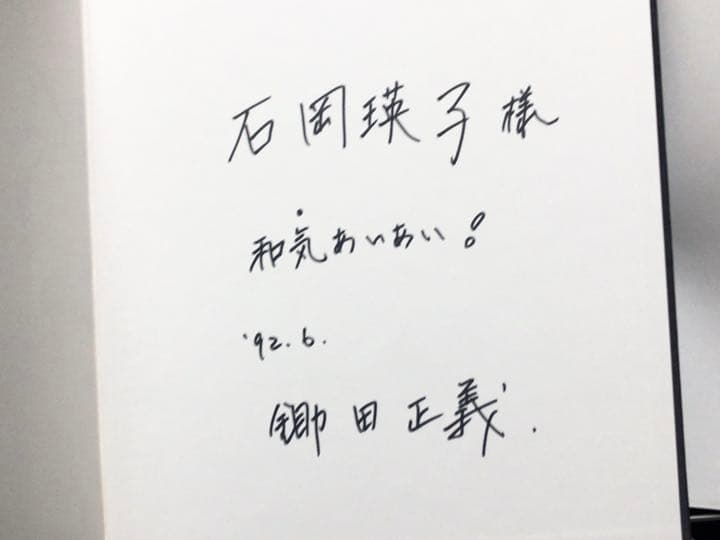 石岡瑛子様
和気あいあい!
'92.6.
鋤田正義.